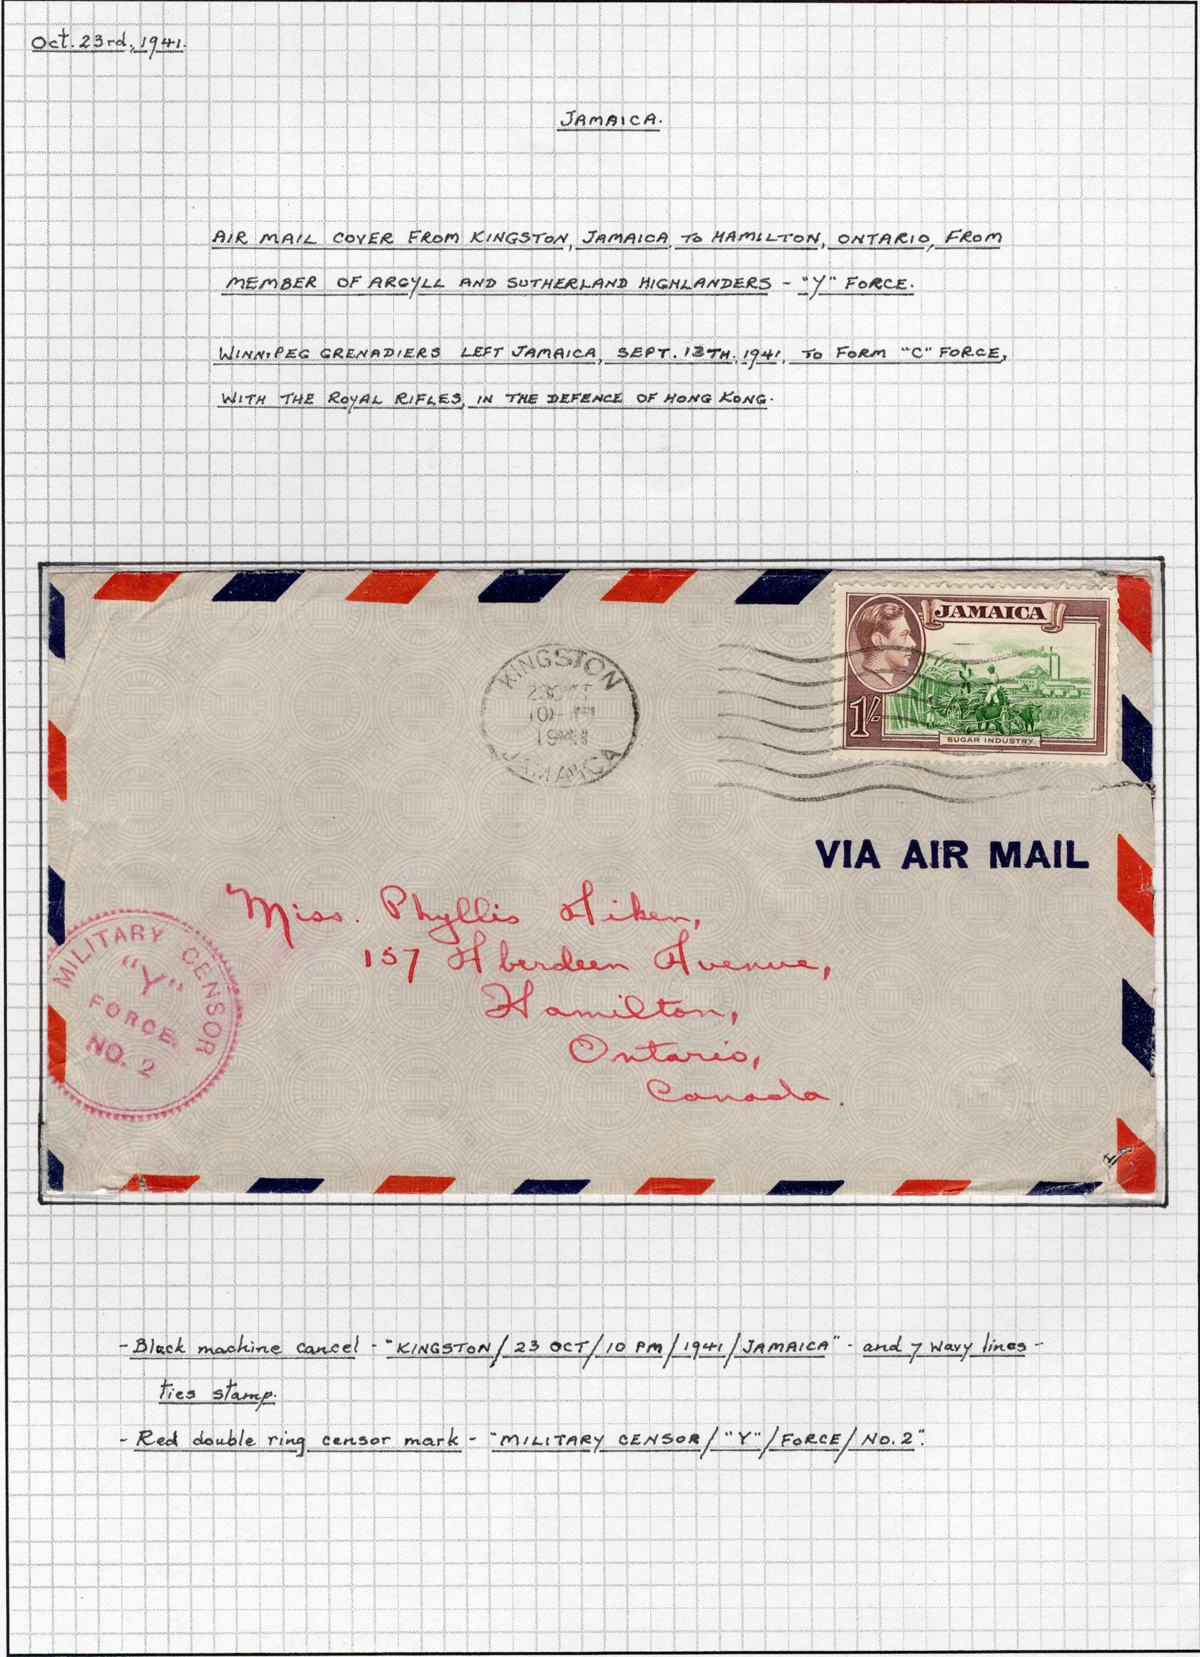 Oct. 23rd, 1941.
JAMAICA.
AIR MAIL COVER FROM KINGSTON, JAMAICA TO HAMILTON, ONTARIO, FROM
MEMBER OF ARGYLL AND SUTHERLAND HIGHLANDERS - "Y" FORCE.
WINNIPEG GRENADIERS LEFT JAMAICA, SEPT. 13TH. 1941, TO FORM "C" FORCE,
WITH THE ROYAL RIFLES, IN THE DEFENCE OF HONG KONG.
JAMAICA
1/-
SUGAR INDUSTRY
KINGSTON
23 OCT
10 - PM
1941
JAMAICA
VIA AIR MAIL
Miss. Phyllis Aiken,
157 Aberdeen Avenue,
Hamilton,
Ontario,
Canada.
MILITARY CENSOR
"Y"
FORCE
NO. 2
- Black machine cancel - "KINGSTON/23 OCT/10 PM/1941/JAMAICA" - and 7 wavy lines -
ties stamp.
- Red double ring censor mark - "MILITARY CENSOR/"Y"/FORCE/NO.2".